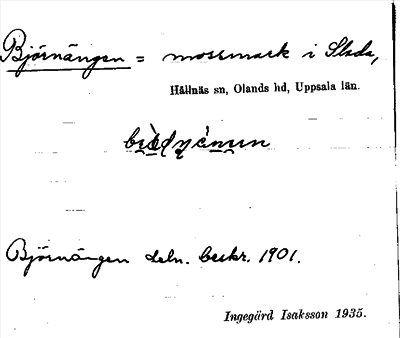 Björnängen = mossmark i Slada,
Hållnäs sn, Olands hd, Uppsala län.
Björnängen deln. beskr. 1901.
Ingegärd Isaksson 1935.